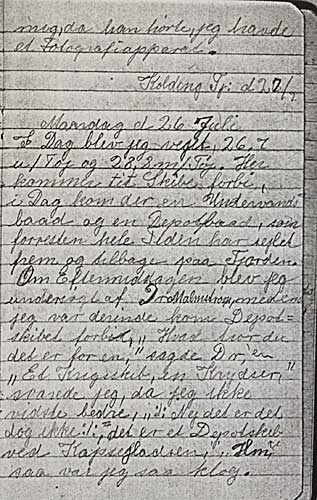 mig, da han hørte, jeg havde
et Fotografiapparat.
Kolding Fj: d 27/7
Mandag d 26 Juli
I Dag blev jeg vejet, 26,7
u/Tøj og 28,2 m/Tøj. Her
kommer tit Skibe forbi,
i Dag kom der en Undervands
baad og en Depotbaad, som
forresten hele Tiden har sejlet
frem og tilbage paa Fjorden.
Om Eftermiddagen blev jeg
undersøgt af Dr Malmstrøm, medens
jeg var derinde kom Depot=
skibet forbi, "Hvad tror du
det er for en," sagde Dr, en
"Et Krigsskib, en Krydser,"
svarede jeg, da jeg ikke
vidste bedre, ": Nej det er det
dog ikke :", "det er et Depotskib
ved Kapsejladsen," "Hm,"
saa var jeg saa klog.